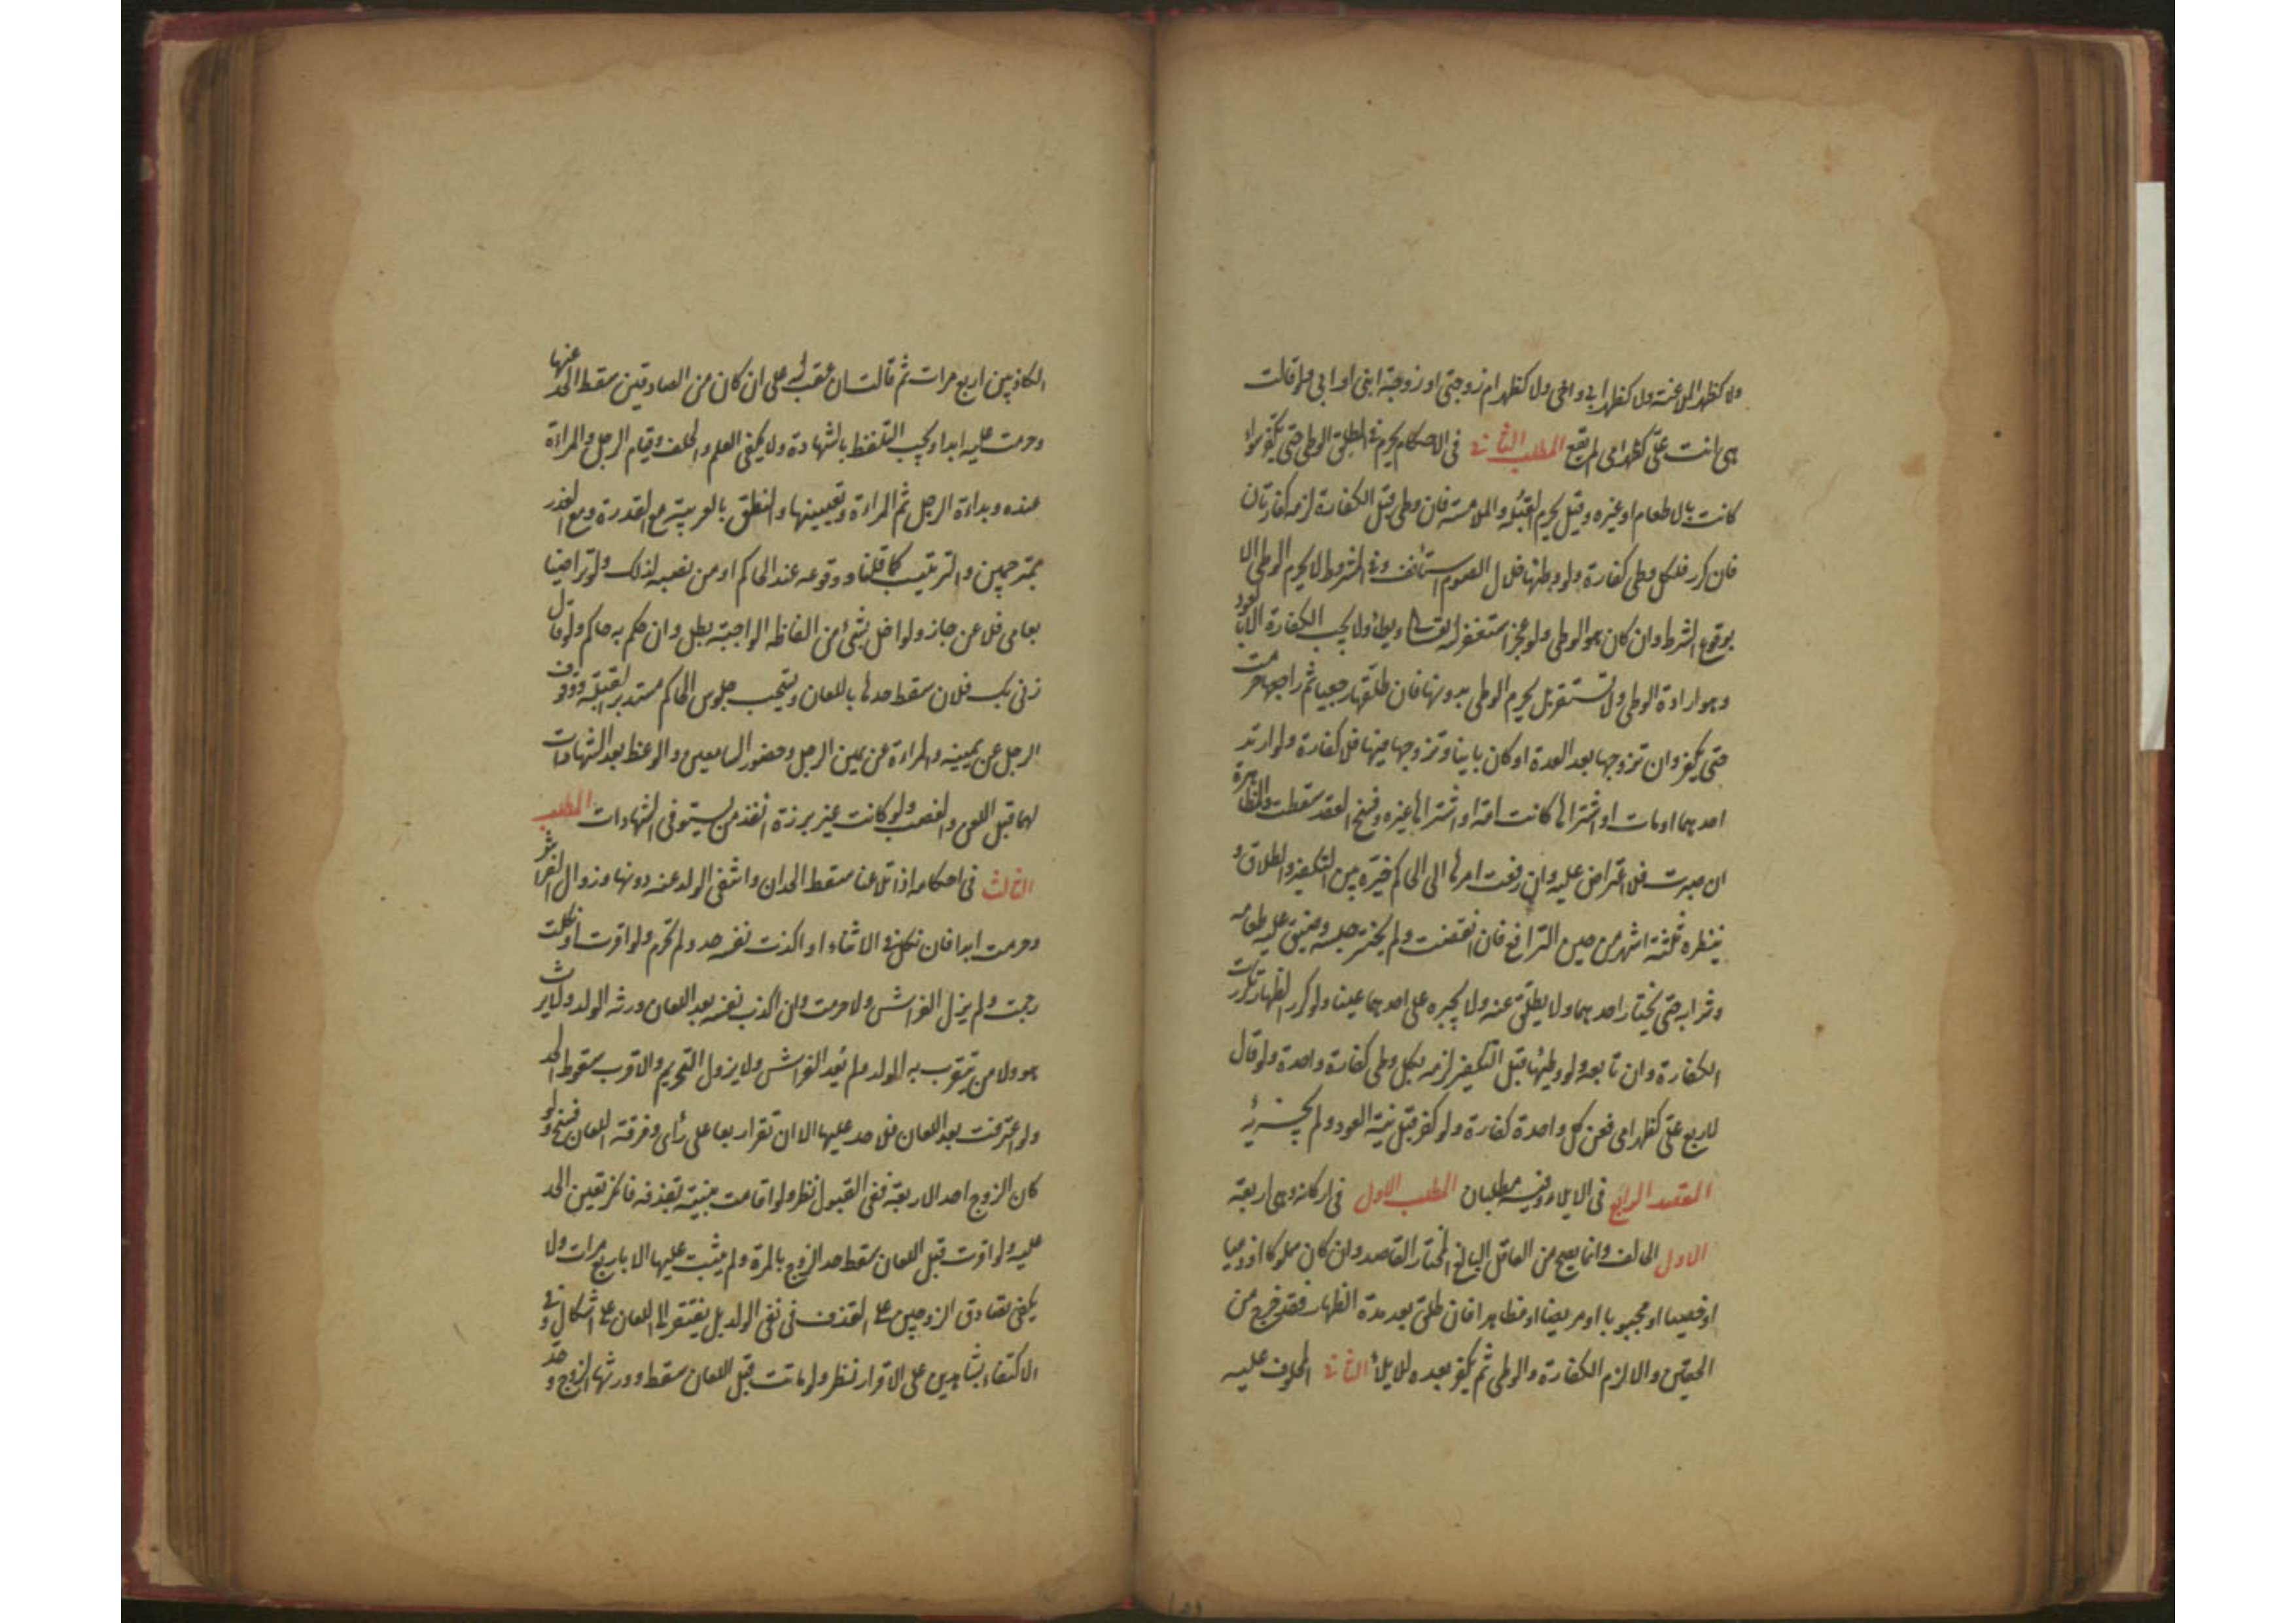 ولا كظهر الملاعنة ولا كظهر ابي واخي ولا كظهر ام زوجتي او زوجة ابني او ابي ولو قالت
هي انت علي كظهر امي لم يقع المطلب الثاني في الاحكام يحرم في المطلق الوطي حتى يكفر سواء
كانت بالاطعام او غيره وقيل يحرم القبلة والملامسة فان وطي قبل الكفارة لزمه كفارتان
فان كرر فلكل وطي كفارة ولو وطئها خلال الصوم استأنف وفي المشروط لا يحرم الوطي الا
بوقوع الشرط وان كان هو الوطي ولو عجز استغفر الله تعالى ويطأ ولا يجب الكفارة الا بالعود
وهو ارادة الوطي ولا تستقر بل يحرم الوطي بدونها فان طلقها رجعيا ثم راجعها حرمت
حتى يكفر وان تزوجها بعد العدة او كان باينا وتزوجها فيها فلا كفارة ولو ارتد
احدهما او مات او اشتراها كانت امة او اشتراها غيره وفسخ العقد سقطت والمظاهرة
ان صبرت فلا اعتراض عليه وان رفعت امرها الى الحاكم خيره بين التكفير والطلاق و
ينظره ثلثة اشهر من حين الترافع فان انقضت ولم يختر حبسه وضيق عليه طعامه
وشرابه حتى يختار احدهما ولا يطلق عنه ولا يجبره على احدهما عينا ولو كرر الظهار تكررت
الكفارة وان تابعه ولو وطيها قبل التكفير لزمه بكل وطي كفارة واحدة ولو قال
لاربع علي كظهر امي فعن كل واحدة كفارة ولو كفر قبل نية العود ولم يجزئه
المقصد الرابع في الايلاء وفيه مطلبان المطلب الاول في اركانه وهي اربعة
الاول الحالف وانما يصح من العاقل البالغ المختار القاصد وان كان مملوكا او ذميا
او خصيا او مجبوبا او مريضا او مظاهرا فان طلق بعد مدة الظهار فقد خرج من
الحقين والا لزم الكفارة والوطي ثم يكفر بعده للايلاء الثاني المحلوف عليه
الكاذبين اربع مرات ثم قالت ان غضب الله علي ان كان من الصادقين سقط الحد عنها
وحرمت عليه ابدا ويجب التلفظ بالشهادة ولا يكفي العلم والحلف وقيام الرجل والمراءة
عنده وبداءة الرجل ثم المراءة وتعيينها والنطق بالعربية مع القدرة ومع العذر
بمترجمين والترتيب كما قلناه ووقوعه عند الحاكم او من نصبه لذلك ولو تراضيا
بعامي فلاعن جاز ولو اخل بشيء من الفاظه الواجبة بطل وان حكم به حاكم ولو قال
زنى بك فلان سقط حدها باللعان ويستحب جلوس الحاكم مستدبر القبلة ووقوف
الرجل عن يمينه والمراءة عن يمين الرجل وحضور السامعين والوعظ بعد الشهادات
لهما قبل اللعن والغضب ولو كانت غير برزة انفذ من يستوفي الشهادات المطلب
الثالث في احكامه اذا تلاعنا سقط الحدان وانتفى الولد عنه دونها وزوال الفراش
وحرمت ابدا فان نكل في الاثناء او اكذب نفسه حد ولم تحرم ولو اقرت او نكلت
رجمت ولم يزل الفراش ولا حرمت وان اكذب نفسه بعد اللعان ورثه الولد ولا يرث
هو ولا من يتقرب به الولد ولم يعد الفراش ولا يزول التحريم والاقرب سقوط الحد
ولو اعترفت بعد اللعان فلا حد عليها الا ان تقر اربعا على رأي وفرقة اللعان فسخ ولو
كان الزوج احد الاربعة ففي القبول نظر ولو اقامت بينة بقذفه فانكر تعين الحد
عليه ولو اقرت قبل اللعان سقط حد الزوج بالمرة ولم يثبت عليها الا باربع مرات ولا
يكفي تصادق الزوجين على القذف في نفي الولد بل يفتقر الى اللعان على اشكال وفي
الاكتفاء بشاهدين على الاقرار نظر ولو ماتت قبل اللعان سقط وورثها الزوج وحد